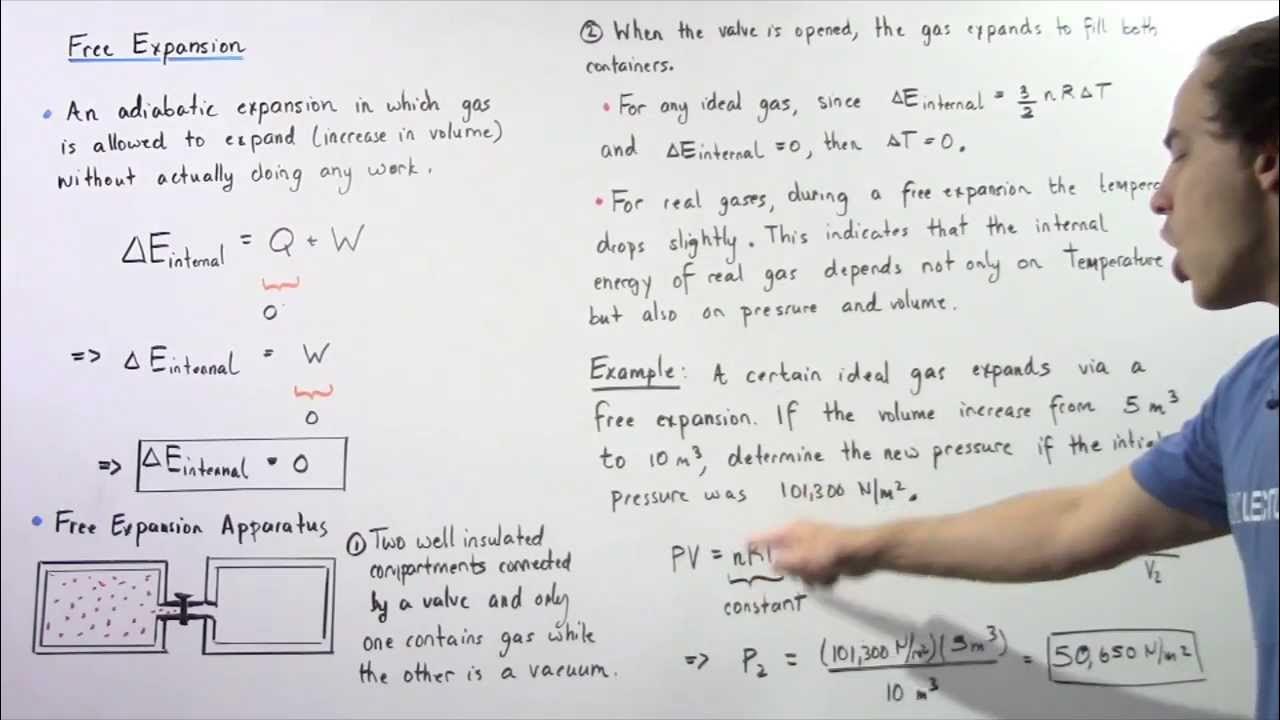 Free Expansion
• An adiabatic expansion in which gas
is allowed to expand (increase in volume)
without actually doing any work.
ΔE internal = Q + W
0
=> ΔE internal = W
0
=> ΔE internal = 0
• Free Expansion Apparatus
① Two well insulated
compartments connected
by a valve and only
one contains gas while
the other is a vacuum.
② When the valve is opened, the gas expands to fill both
containers.
• For any ideal gas, since ΔE internal = 3/2 nRΔT
and ΔE internal = 0, then ΔT = 0.
• For real gases, during a free expansion the
drops slightly. This indicates that the internal
energy of real gas depends not only on Temperature
but also on pressure and volume.
Example: A certain ideal gas expands via a
free expansion. If the volume increase from 5 m³
to 10 m³, determine the new pressure if the
pressure was 101,300 N/m².
PV = nRT
constant
V₂
=> P₂ = (101,300 N/m²)(5m³) = 50,650 N/m²
10 m³